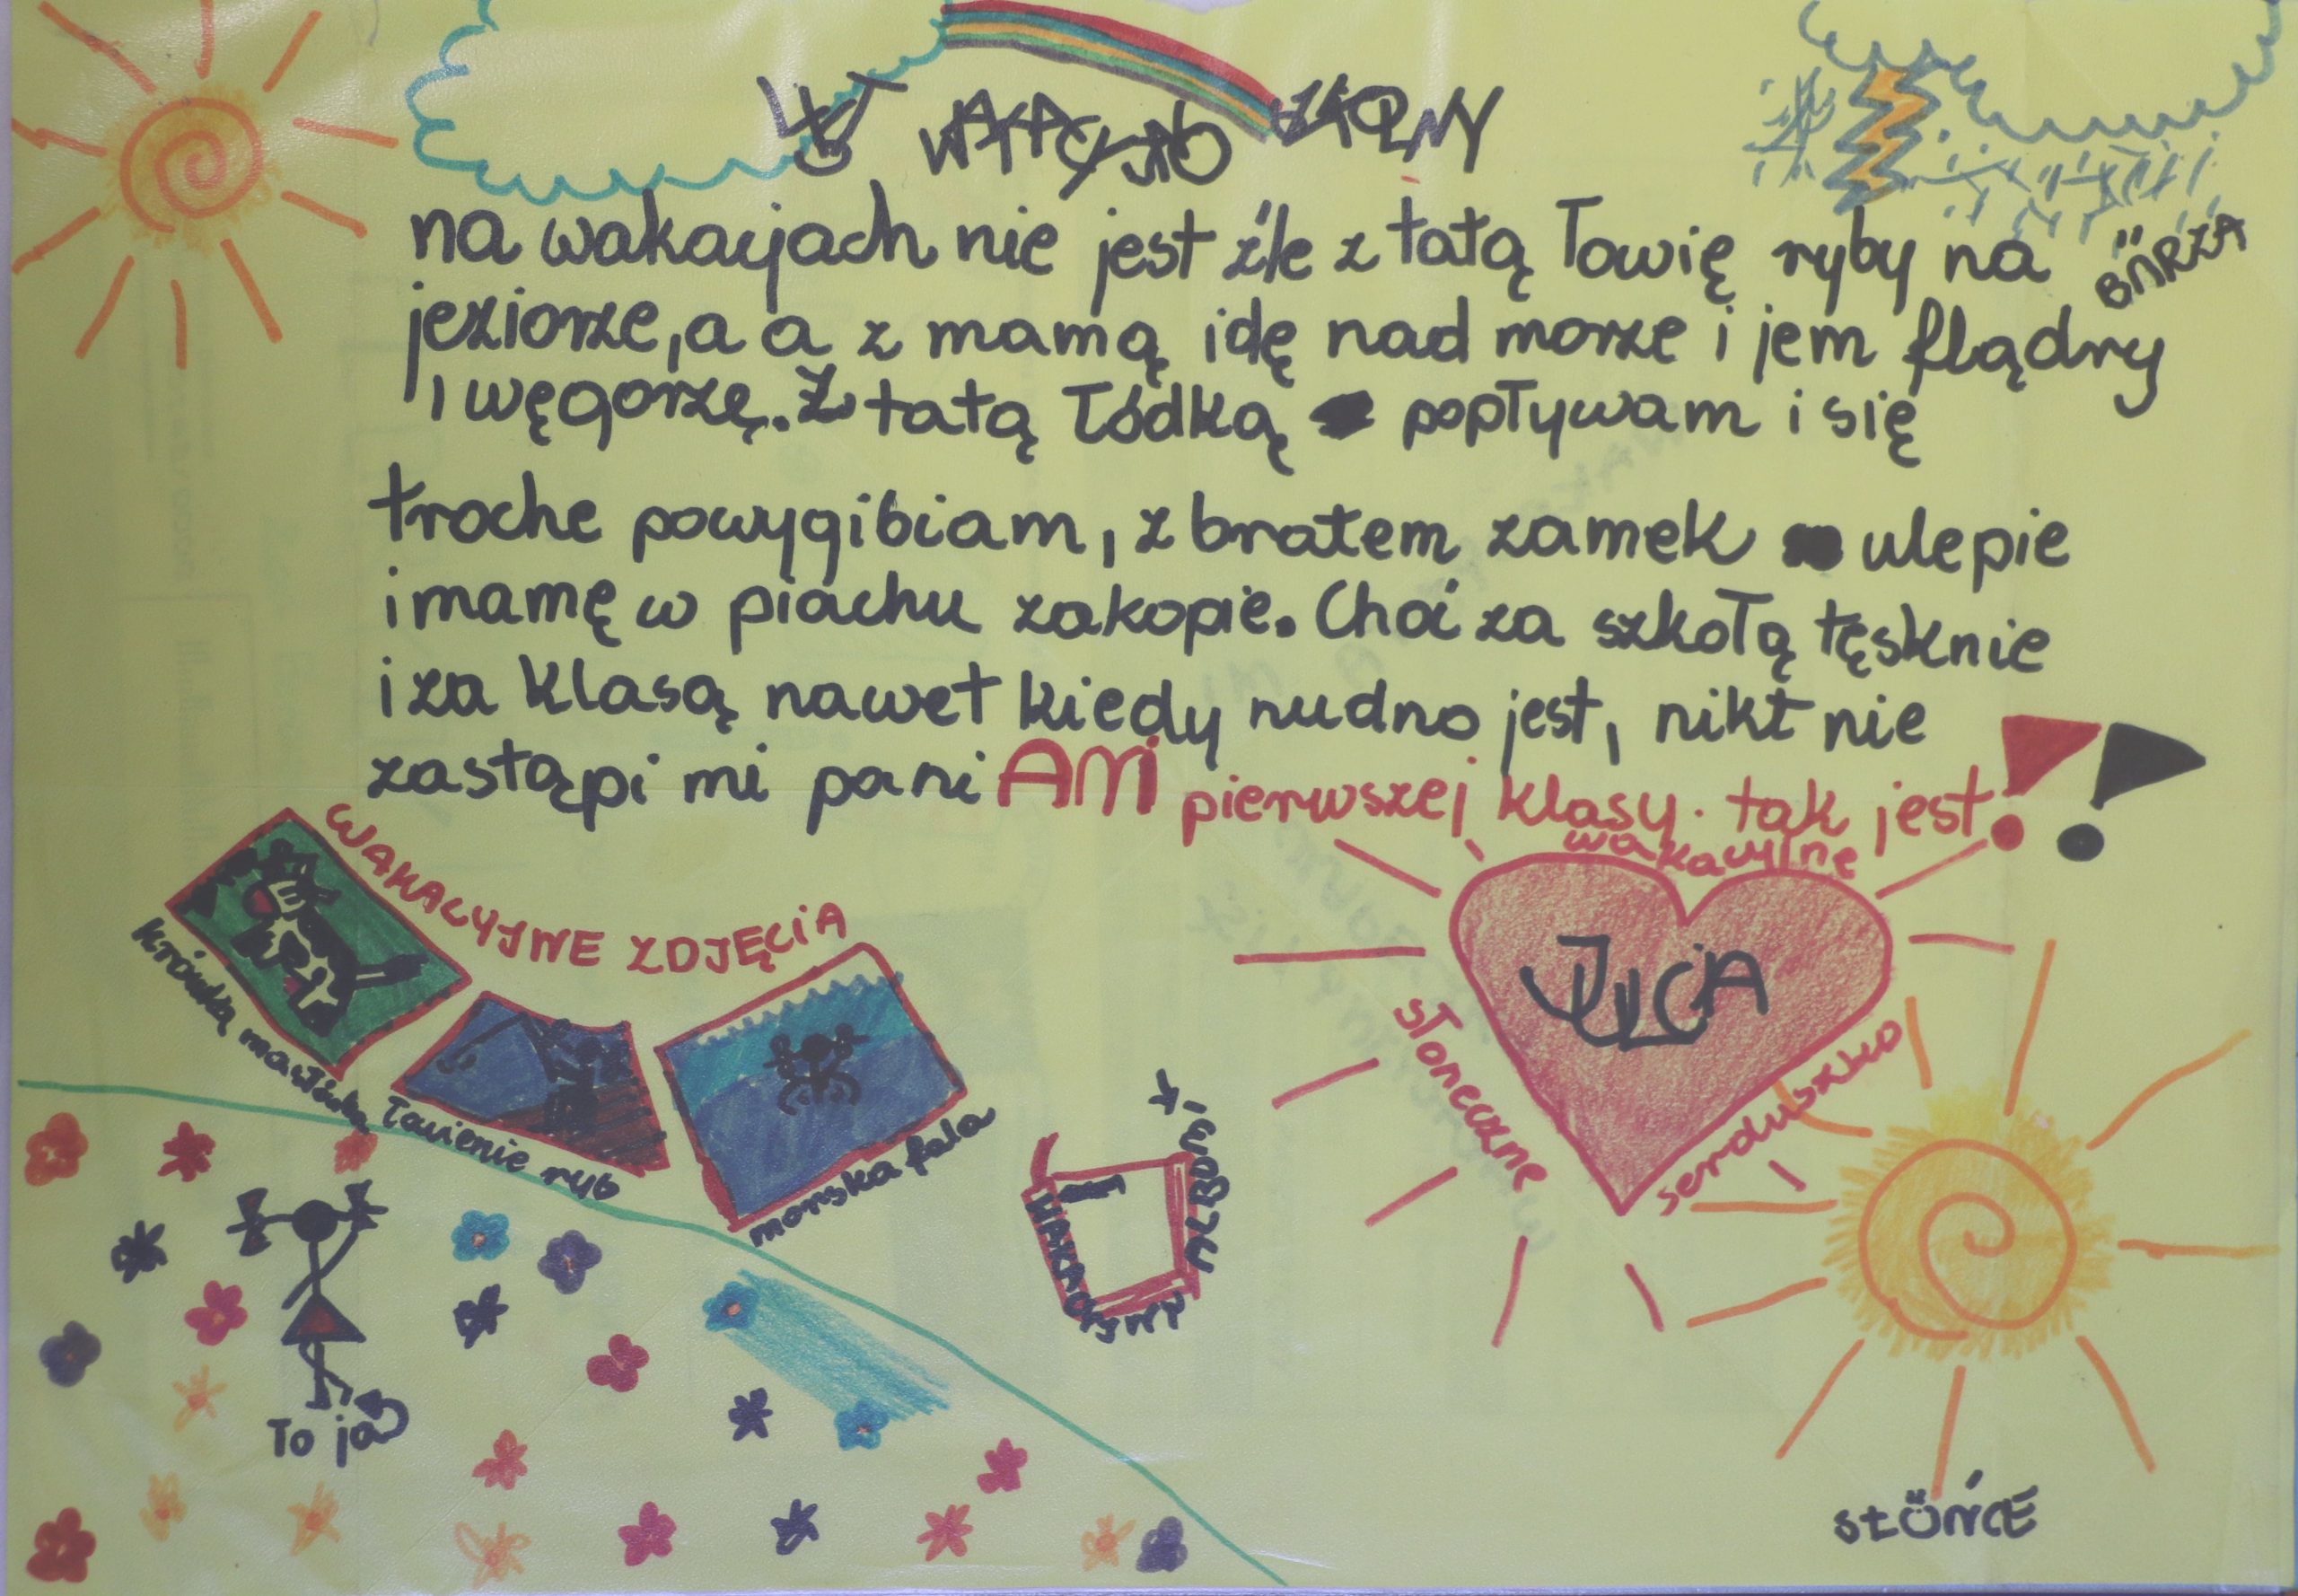 LIST WAKACYJNO
na wakacjach nie jest źle z tatą łowię ryby na
jeziorze, a a z mamą idę nad morze i jem flądry
i węgorzę. Z tatą łódką popływam i się
troche powygibiam, z bratem zamek ulepie
i mamę w piachu zakopie. Choć za szkołą tęsknie
i za klasą nawet kiedy nudno jest, nikt nie
zastąpi mi pani AMI pierwszej klasy. tak jest!!
BURZA
WAKACYJNE ZDJĘCIA
krówką mastówką
łowienie ryb
morska fala
WAKACYJNY
ALBUMIK
wakacyjne
słoneczne
serduszko
JULCIA
To ja
SŁOŃCE